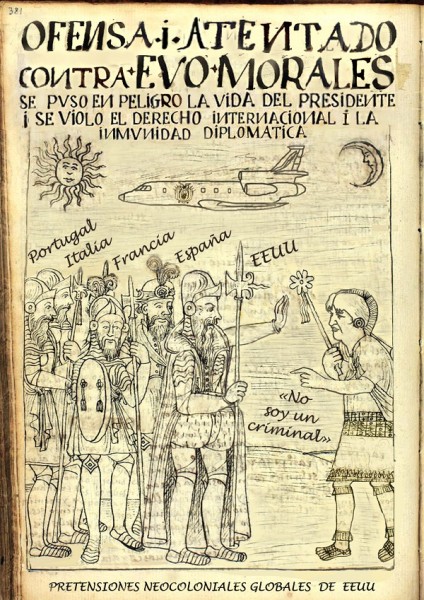 381
OFENSA·i·ATENTADO
CONTRA+EVO+MORALES
SE PVSO EN PELIGRO LA VIDA DEL PRESIDENTE
i SE VIOLO EL DERECHO INTERNACIONAL I LA
INMVNIDAD DIPLOMATICA
Portugal
Italia
Francia
España
EEUU
«No
soy un
criminal»
PRETENSIONES NEOCOLONIALES GLOBALES DE EEUU